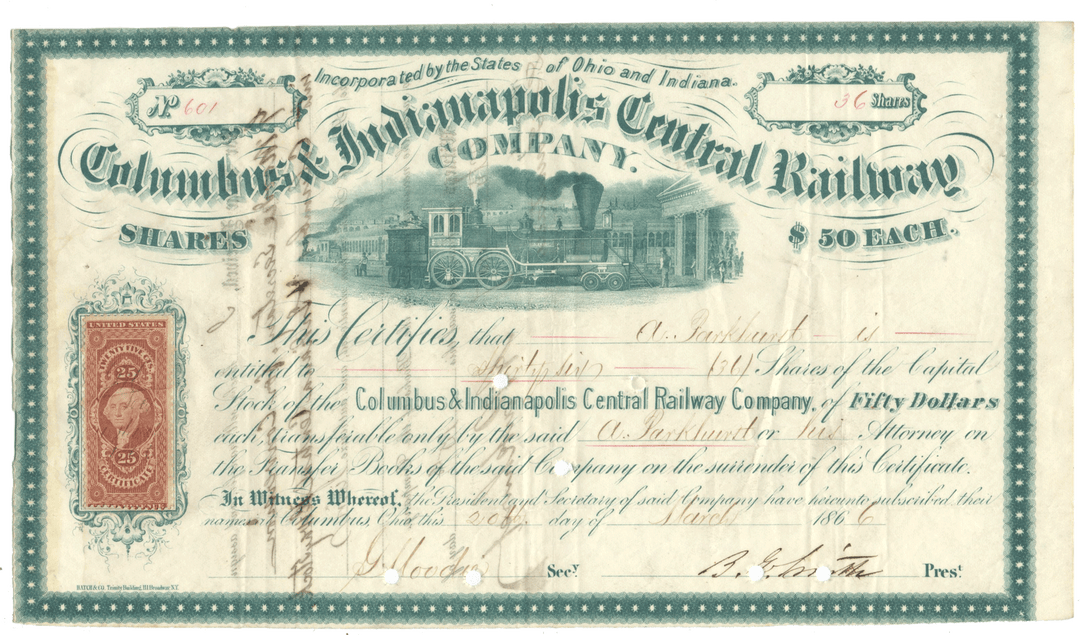 Incorporated by the States of Ohio and Indiana.
No 601
36 Shares
Columbus & Indianapolis Central Railway
COMPANY.
SHARES
$ 50 EACH.
This Certifies, that A. Parkhurst is
entitled to Thirty six (36) Shares of the Capital
Stock of the Columbus & Indianapolis Central Railway Company, of Fifty Dollars
each, transferable only by the said A. Parkhurst or his Attorney on
the Transfer Books of the said Company on the surrender of this Certificate.
In Witness Whereof, the President and Secretary of said Company have hereunto subscribed their
names at Columbus, Ohio, this day of March 1866
Secy.
B. E. Smith Prest
HATCH & CO. Trinity Building, 111 Broadway N.Y.
UNITED STATES
TWENTY FIVE CTS.
25
25
CERTIFICATE